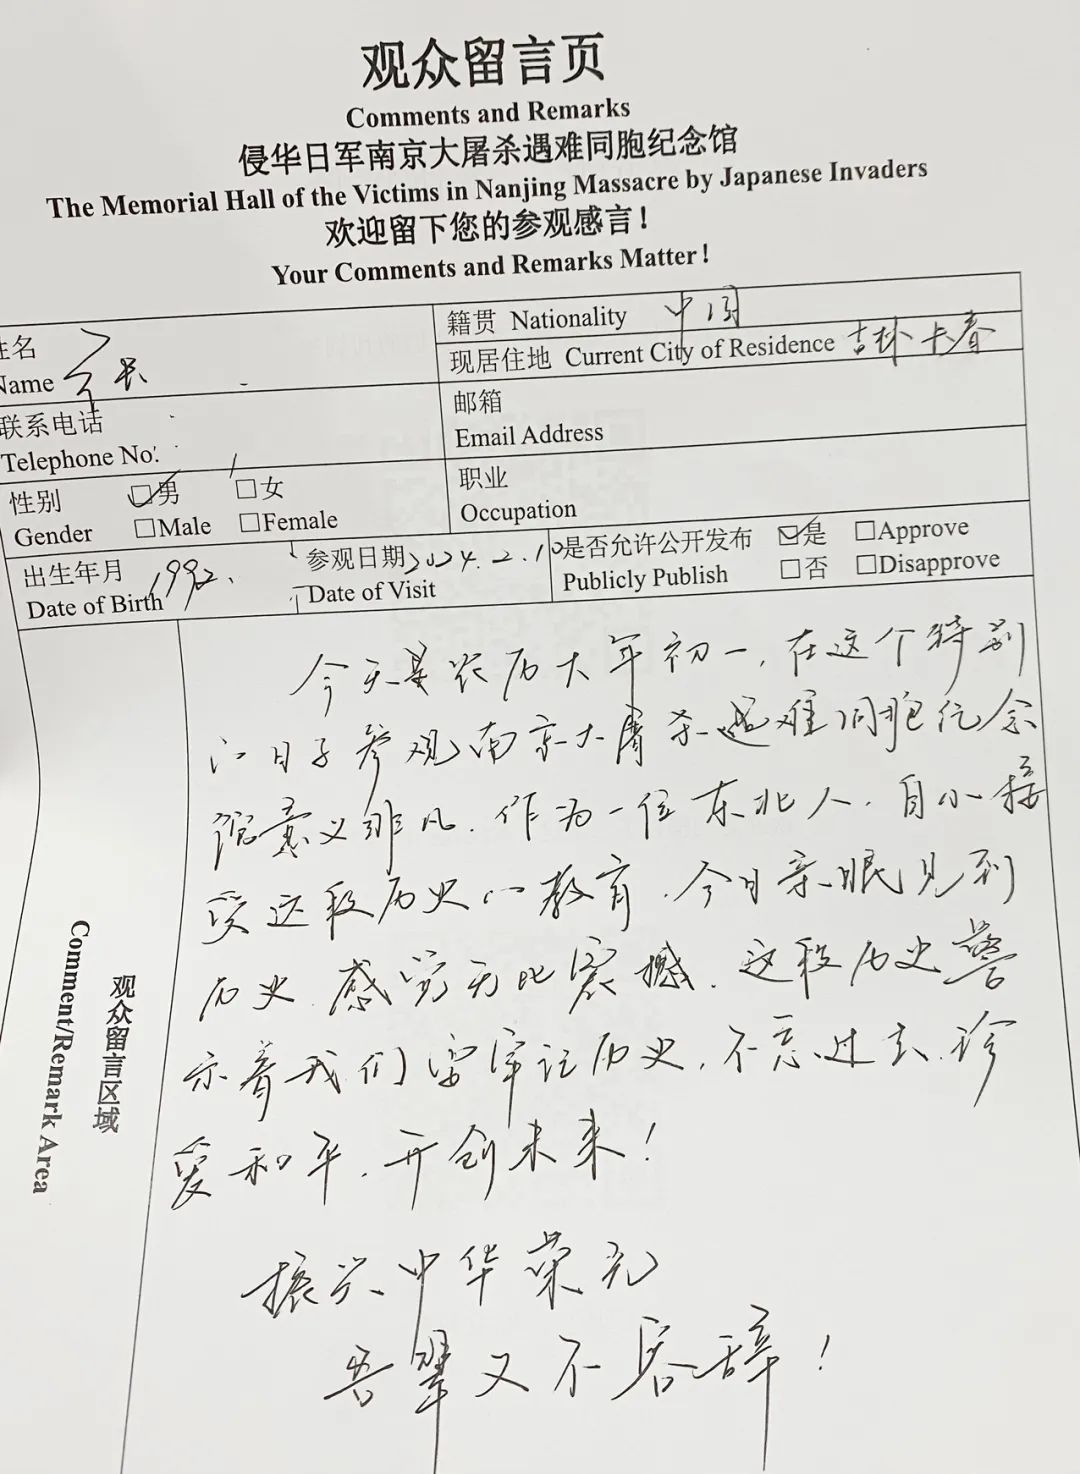 观众留言页
Comments and Remarks
侵华日军南京大屠杀遇难同胞纪念馆
The Memorial Hall of the Victims in Nanjing Massacre by Japanese Invaders
欢迎留下您的参观感言！
Your Comments and Remarks Matter!
姓名
Name
籍贯 Nationality 中国
现居住地 Current City of Residence 吉林长春
联系电话
Telephone No.
邮箱
Email Address
性别 ☑男 □女
Gender □Male □Female
职业
Occupation
出生年月 1992.
Date of Birth
参观日期 2024.2.10
Date of Visit
是否允许公开发布 ☑是 □Approve
Publicly Publish □否 □Disapprove
观众留言区域
Comment/Remark Area
今天是农历大年初一，在这个特别
的日子参观南京大屠杀遇难同胞纪念
馆意义非凡。作为一位东北人，自小接
受这段历史的教育，今日亲眼见到
历史，感觉无比震撼，这段历史警
示着我们要牢记历史，不忘过去，珍
爱和平，开创未来！
振兴中华荣光
吾辈义不容辞！